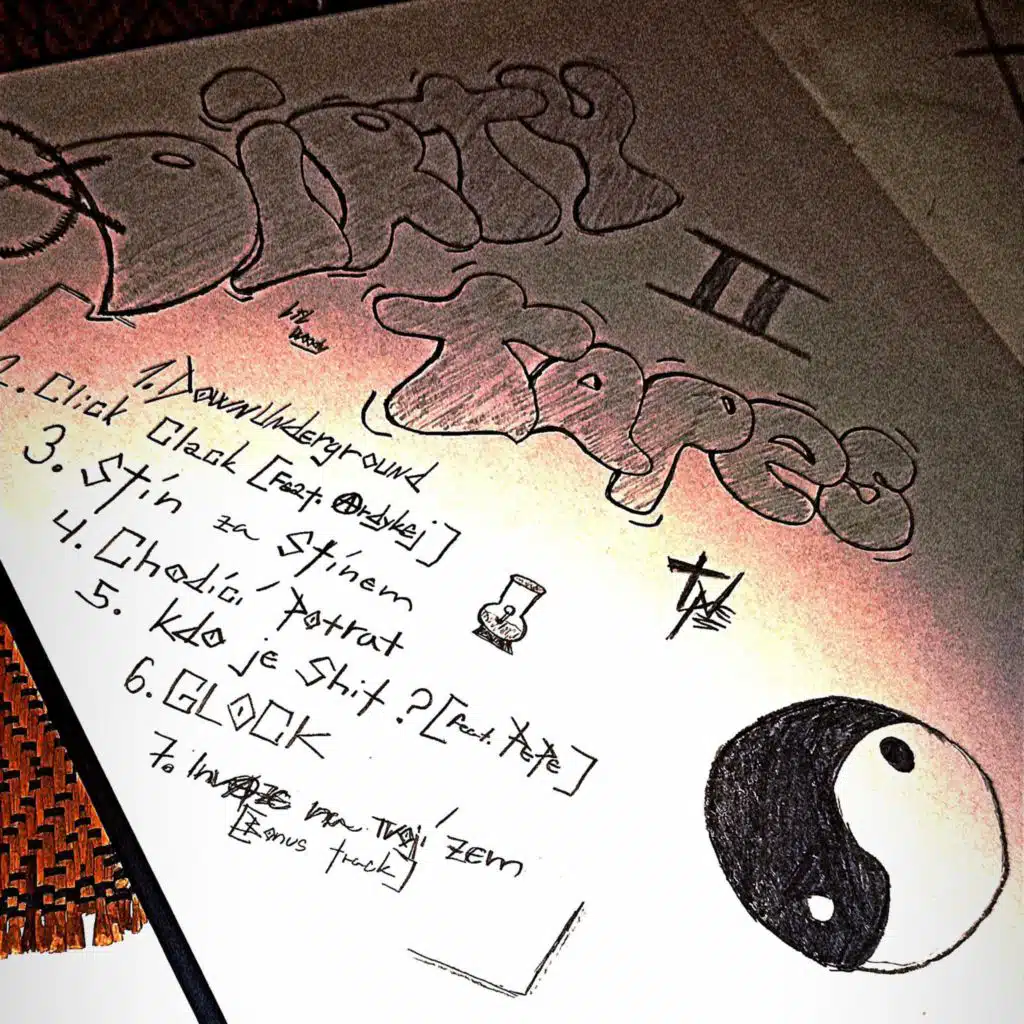 Dirty
II
Tapes
1. DownUnderground
2. Click Clack [Feat. Ardykej]
3. Stín za Stínem
4. Chodící Potrat
5. Kdo je Shit? [Feat. PePe]
6. GLOCK
7. Invaze na tvojí zem
[Bonus track]